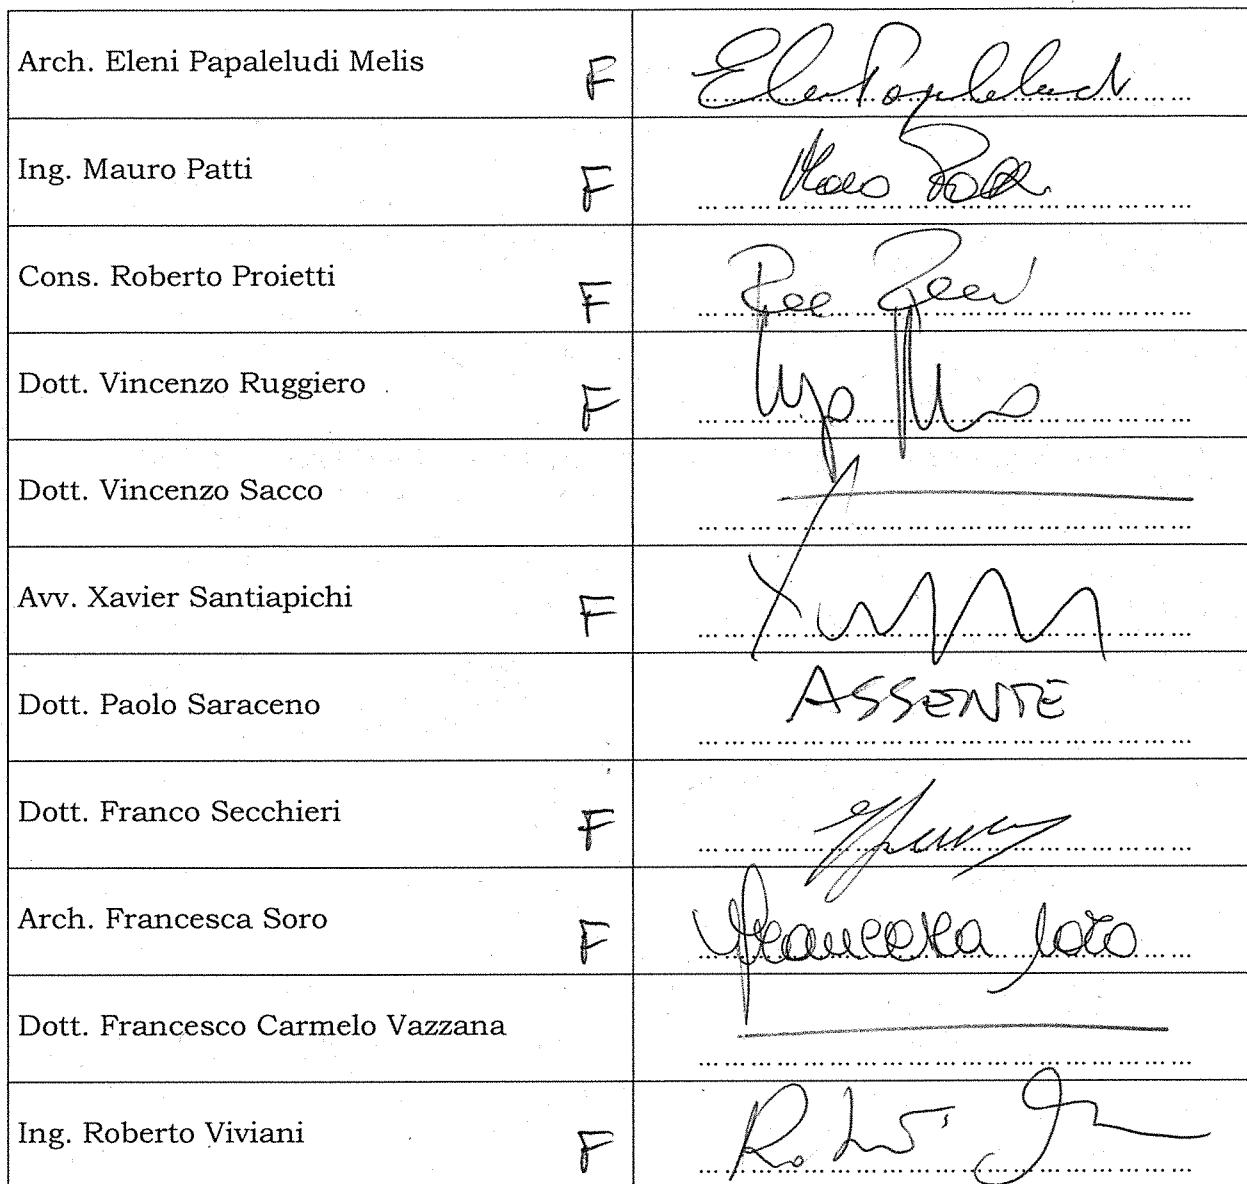 Arch. Eleni Papaleludi Melis F
Ing. Mauro Patti F
Cons. Roberto Proietti F
Dott. Vincenzo Ruggiero F
Dott. Vincenzo Sacco
Avv. Xavier Santiapichi F
Dott. Paolo Saraceno ASSENTE
Dott. Franco Secchieri F
Arch. Francesca Soro F Francesca Soro
Dott. Francesco Carmelo Vazzana
Ing. Roberto Viviani F